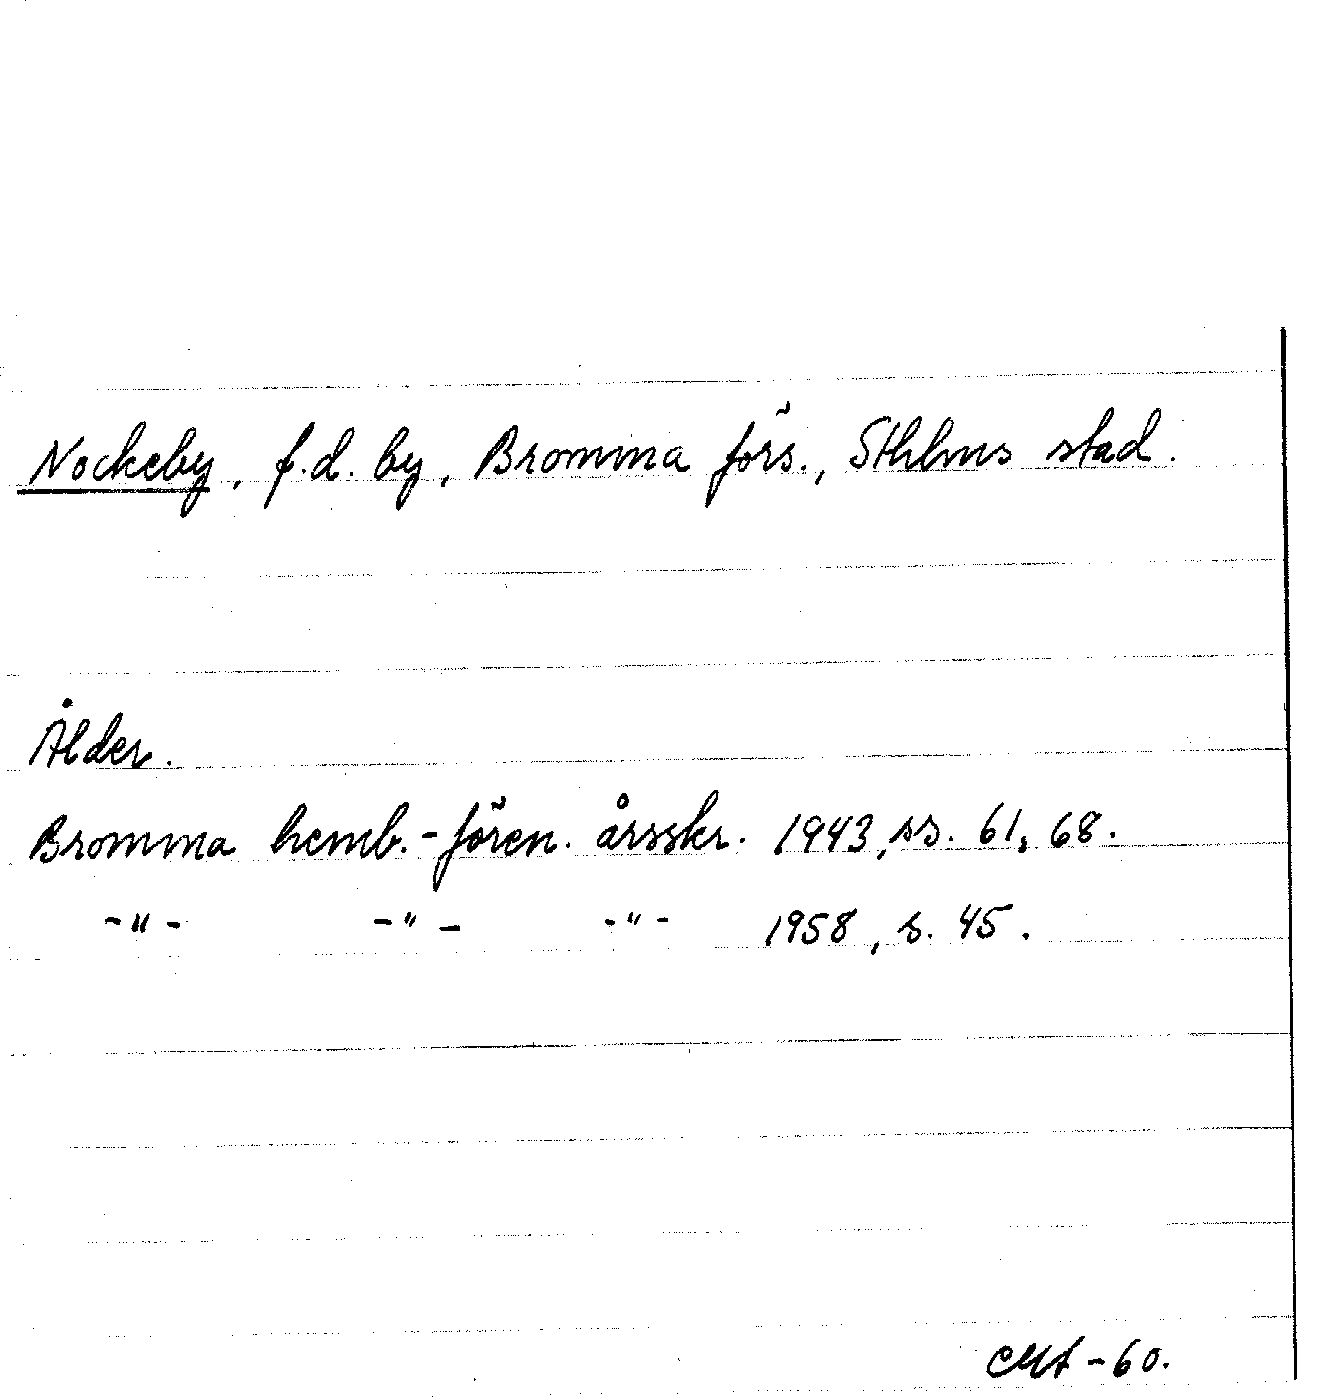 Nockeby, f.d. by, Bromma förs., Sthlms stad.
Ålder.
Bromma hemb.-fören. årsskr. 1943, ss. 61, 68.
-"- -"- -"- 1958, s. 45.
-60.